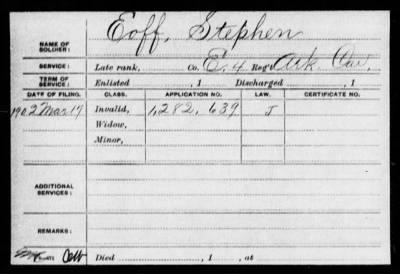 Eoff, Stephen
NAME OF SOLDIER:
SERVICE: Late rank, Co. E. 4 Reg't Ark. Cav.
TERM OF SERVICE: Enlisted , 1 Discharged , 1
DATE OF FILING. CLASS. APPLICATION NO. LAW. CERTIFICATE NO.
1902 Mar 17 Invalid, 1,282,639 J
Widow,
Minor,
ADDITIONAL SERVICES:
REMARKS:
Died , 1 , at